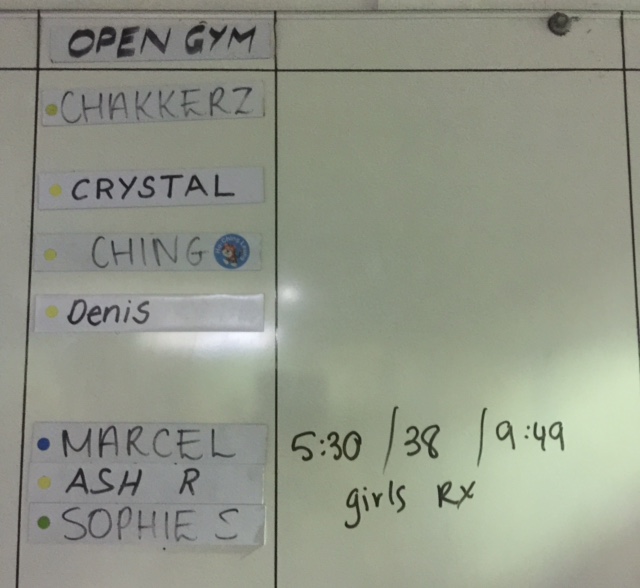 OPEN GYM
CHAKKERZ
CRYSTAL
CHING
Denis
MARCEL 5:30 / 38 / 9:49
ASH R girls RX
SOPHIE S